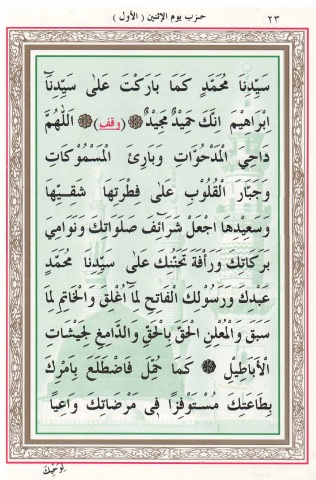 حزب يوم الإثنين ( الأول )
٢٣
سَيِّدِنَا مُحَمَّدٍ كَمَا بَارَكْتَ عَلٰى سَيِّدِنَا
اِبْرَاهِيمَ اِنَّكَ حَمِيدٌ مَجِيدٌ ( وقف ) اَللّٰهُمَّ
دَاحِيَ الْمَدْحُوَّاتِ وَبَارِئَ الْمَسْمُوكَاتِ
وَجَبَّارَ الْقُلُوبِ عَلٰى فِطْرَتِهَا شَقِيِّهَا
وَسَعِيدِهَا اجْعَلْ شَرَائِفَ صَلَوَاتِكَ وَنَوَامِيَ
بَرَكَاتِكَ وَرَأْفَةَ تَحَنُّنِكَ عَلٰى سَيِّدِنَا مُحَمَّدٍ
عَبْدِكَ وَرَسُولِكَ الْفَاتِحِ لِمَا اُغْلِقَ وَالْخَاتِمِ لِمَا
سَبَقَ وَالْمُعْلِنِ الْحَقَّ بِالْحَقِّ وَالدَّامِغِ لِجَيْشَاتِ
الْاَبَاطِيلِ كَمَا حُمِّلَ فَاضْطَلَعَ بِاَمْرِكَ
بِطَاعَتِكَ مُسْتَوْفِزًا فِى مَرْضَاتِكَ وَاعِيًا
لِوَحْيِكَ